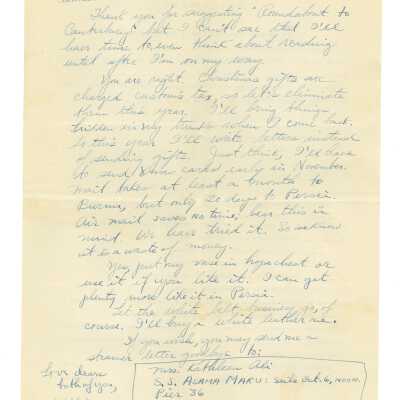 Thank you for suggesting "Roundabout to
Canterbury" but I can't see that I'll
have time to even think about reading
until after I'm on my way.
You are right. Christmas gifts are
charged customs tax, so let's eliminate
them this year. I'll bring things
hidden in my trunks when I come back.
So this year I'll write letters instead
of sending gifts. Just think, I'll have
to send Xmas cards early in November.
mail takes at least 2 months to
Burma, but only 20 days to Persia.
Air mail saves no time, bear this in
mind. We have tried it. So
it is a waste of money.
Yes, put my vase in hope chest or
use it if you like it. I can get
plenty more like it in Persia.
Let the white belt go, of
course. I'll buy a white leather one.
If you wish, you may send me a
steamer letter goodbye to:
Love dears
both of you,
Miss Kathleen
S.S. Arama Maru: Suite Oct. 6, noon.
Pier 36